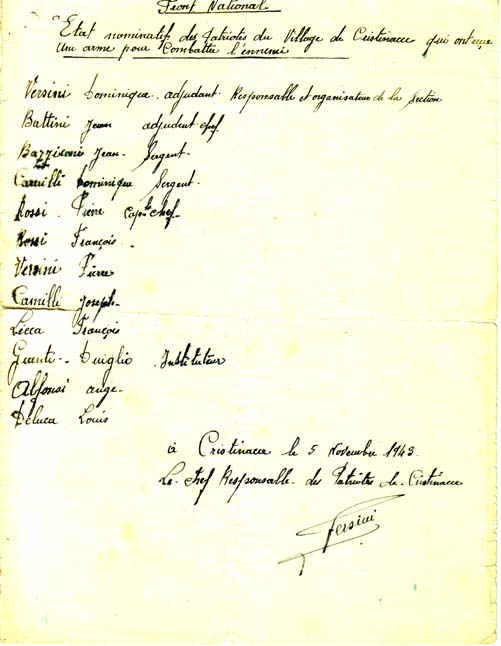 Front National
Etat nominatif des Patriotes du Village de Cristinacce qui ont reçue
Un arme pour Combattre l'ennemi
Versini Dominique. adjudant Responsable et organisateur de la Section
Battini Jean adjudent chef
Jean - Sergent.
Camilli Dominique Sergent.
Rossi. Pierre Cap. Chef.
Rossi François.
Versini Pierre
Camilli Joseph.
Lecca François
Instituteur
Alfonsi ange.
Deluca Louis
à Cristinacce le 5 Novembre 1943.
Le Chef Responsable. des Patriotes de Cristinacce
Versini